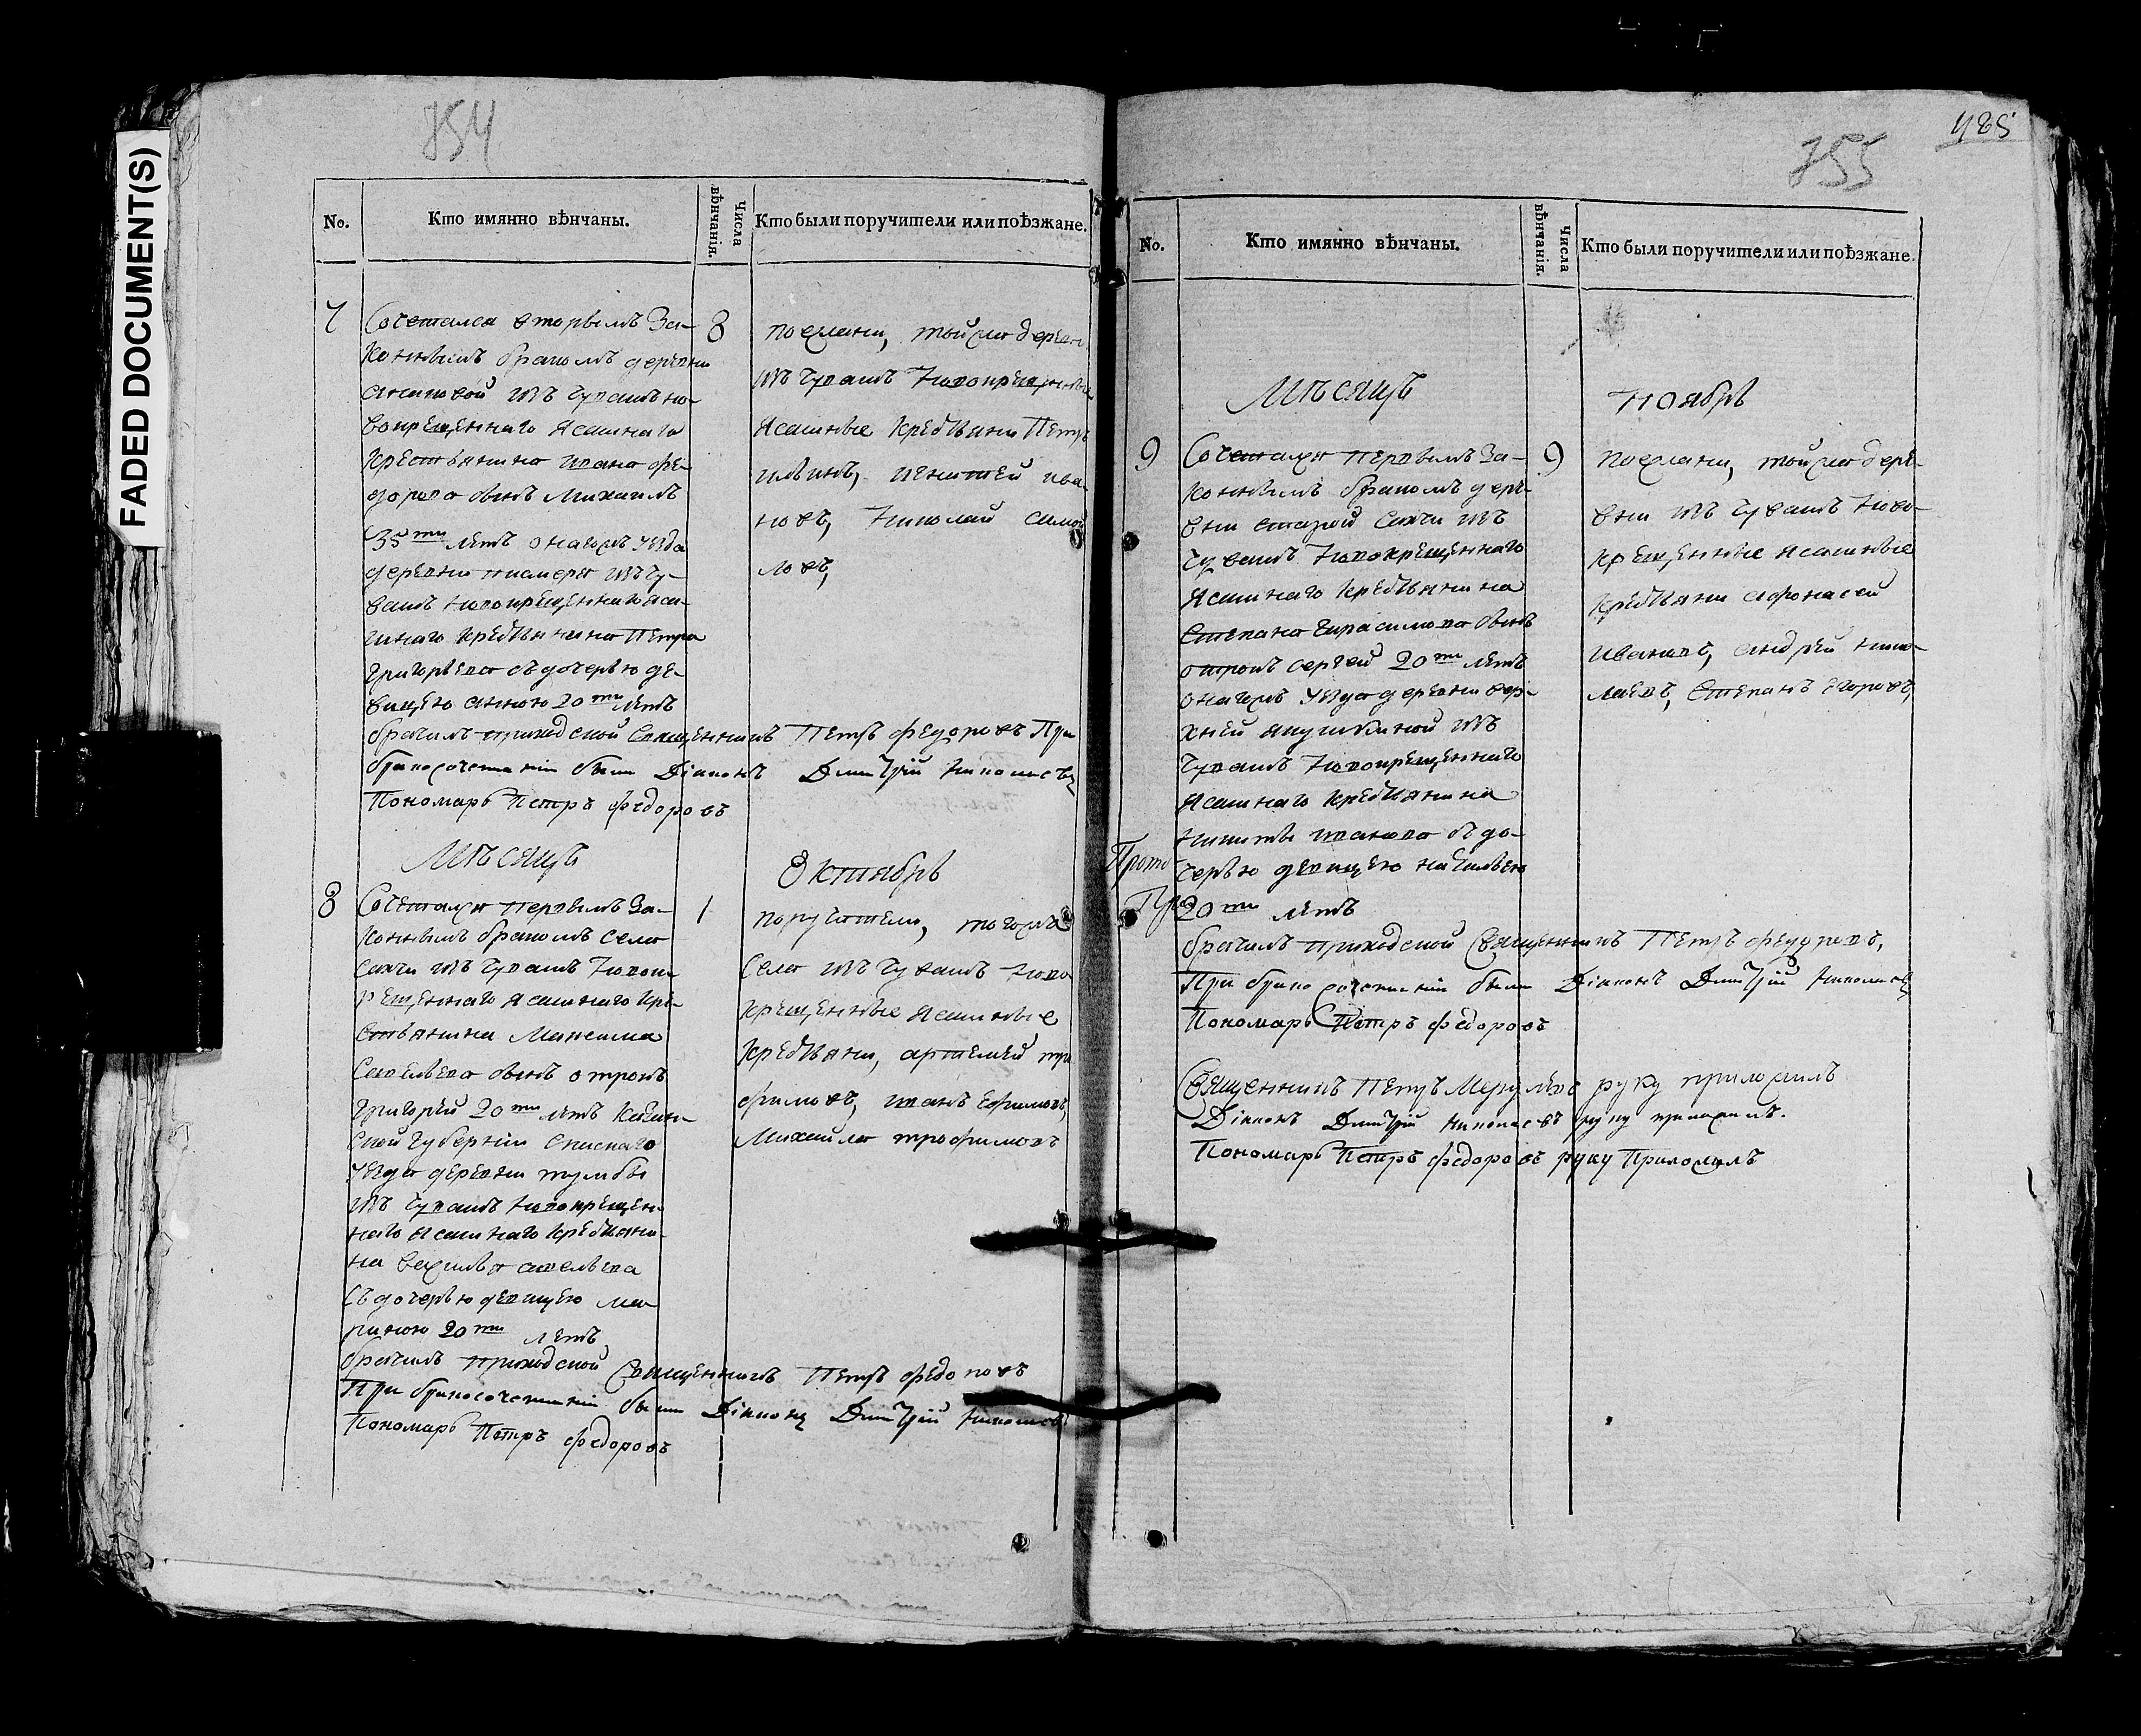 FADED DOCUMENT(S)
754
No.
Кто имянно вѣнчаны.
Числа
вѣнчанія.
Кто были поручители или поѣзжане.
7
Сочетался вторымъ За-
коннымъ бракомъ деревни
изъ чувашъ но-
вокрещеннаго Ясашнаго
крестьянина Ивана Фе-
дорова сынъ Михаилъ
35 ти летъ онагожъ уезда
деревни изъ чу-
вашъ новокрещеннаго яса-
шнаго крестьянина Петра
Григорьева съ дочерью де-
вицею Анною 20 ти летъ
8
поезжани, тойже деревни
изъ чувашъ новокрещенные
Ясашные крестьяни Петръ
Ива-
новъ, Николай
ловъ,
брачилъ приходской Священникъ Петръ Федоровъ При
бракосочетаніи были Діаконъ Дмитрій Николаевъ
Пономарь Петръ Федоровъ
Мѣсяцъ
Октябрь
8
Сочетался первымъ За-
коннымъ бракомъ села
изъ чувашъ новок-
рещеннаго Ясашнаго кре-
стьянина Максима
Савельева сынъ отрокъ
Григорей 20 ти летъ Казан-
ской губерніи Спаскаго
уезда деревни
изъ чувашъ новокрещен-
наго Ясашнаго крестьяни-
на
съ дочерью девицею Ма-
риною 20 ти летъ
1
поручители, тогожъ
села изъ чувашъ ново
крещенные Ясашные
крестьяни, Артемей Тро
фимовъ, Иванъ Ефимовъ,
Михайла Трофимовъ
брачилъ приходской Священникъ Петръ Федоровъ
При бракосочетаніи были Діаконъ Дмитрій Николаевъ
Пономарь Петръ Федоровъ
485
755
No.
Кто имянно вѣнчаны.
Числа
вѣнчанія.
Кто были поручители или поѣзжане.
Мѣсяцъ
Ноябрь
9
Сочетался первымъ За-
коннымъ бракомъ дере-
вни старой изъ
чувашъ новокрещеннаго
Ясашнаго крестьянина
Степана Гарасимова сынъ
отрокъ Сергей 20 ти летъ
онагожъ уезда деревни вер-
хней Якушкиной изъ
чувашъ новокрещеннаго
Ясашнаго крестьянина
Никиты Иванова съ до-
черью девицею
20 ти летъ
9
поезжани, тойже дере-
вни изъ чувашъ ново-
крещенные Ясашные
крестьяни Афонасей
Ивановъ, Андрей Нико-
лаевъ, Степанъ Егоровъ,
брачилъ приходской Священникъ Петръ Федоровъ,
При бракосочетаніи были Діаконъ Дмитрій Николаевъ
Пономарь Петръ Федоровъ
Священникъ Петръ руку приложилъ
Діаконъ Дмитрій Николаевъ руку приложилъ.
Пономарь Петръ Федоровъ руку Приложилъ